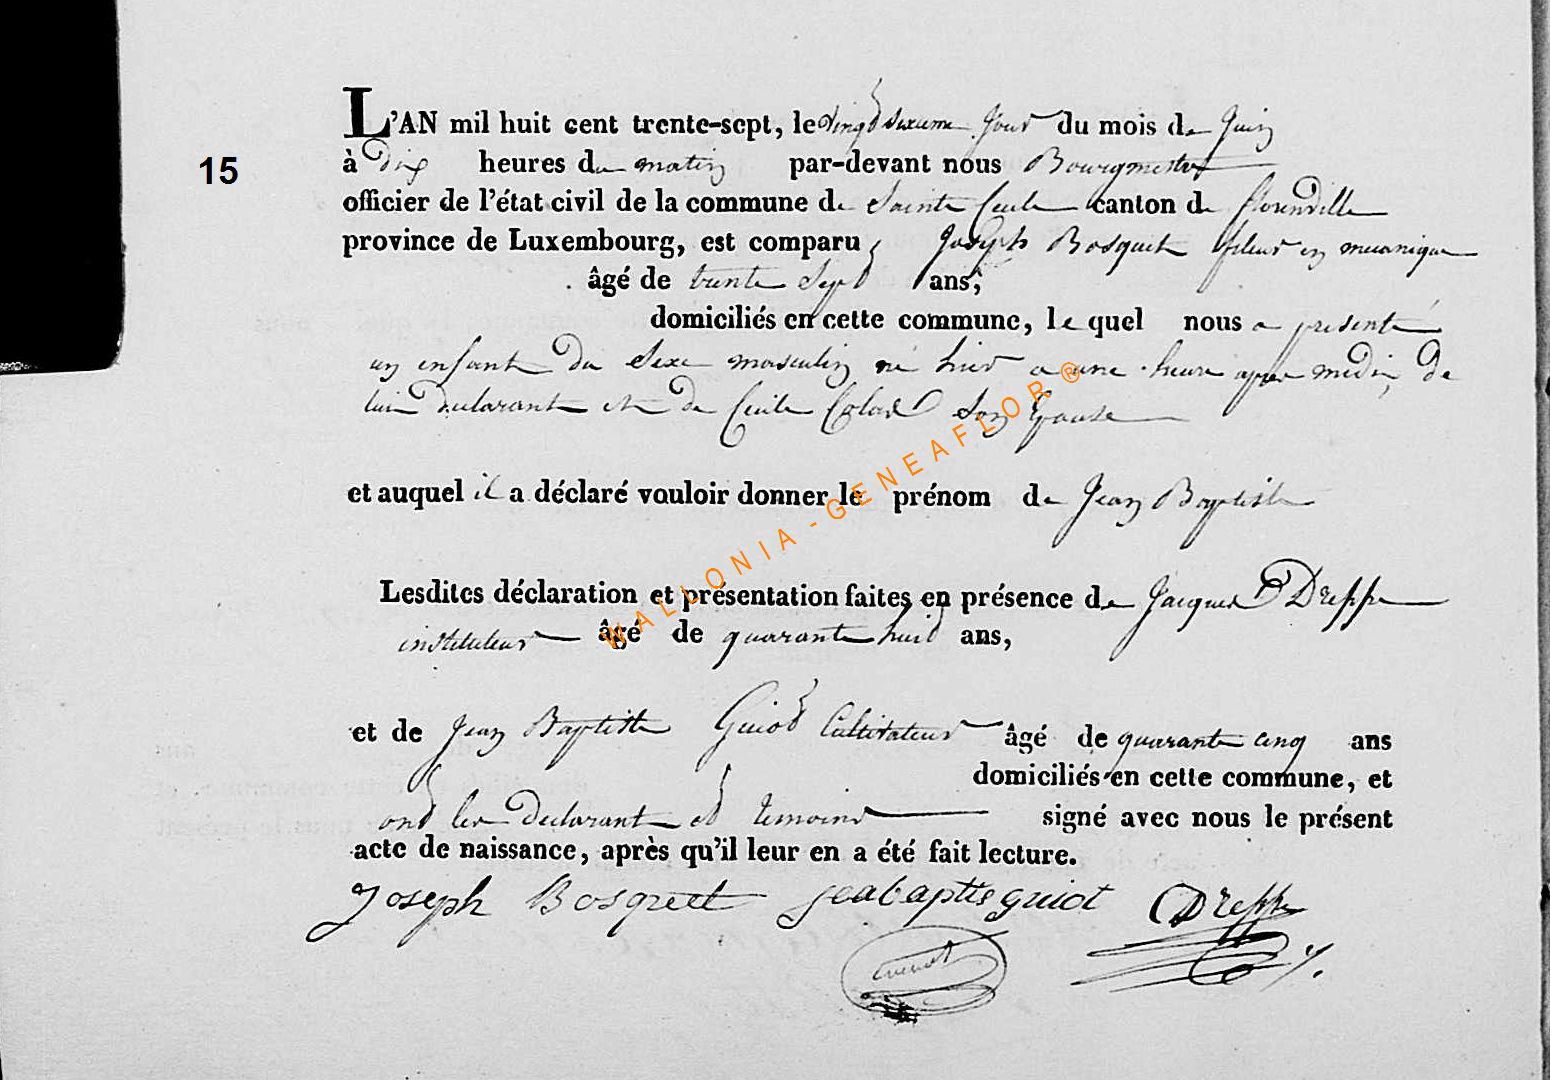 15
L'AN mil huit cent trente-sept, le vingt sixieme jour du mois de Juin
à dix heures du matin par-devant nous Bourgmestre
officier de l'état civil de la commune de Sainte Cecile canton de florenville
province de Luxembourg, est comparu Joseph Bosquet fileur en mecanique
âgé de trente sept ans,
domiciliés en cette commune, le quel nous a presenté
un enfant du sexe masculin né hier a une heure apres midi, de
lui declarant et de Cecile Colas son Epouse
et auquel il a déclaré vouloir donner le prénom de Jean Baptiste
Lesdites déclaration et présentation faites en présence de Jacques Dreppe
instituteur âgé de quarante huit ans,
et de Jean Baptiste Guiot Cultivateur âgé de quarante cinq ans
domiciliés en cette commune, et
ont les declarant et temoins signé avec nous le présent
acte de naissance, après qu'il leur en a été fait lecture.
Joseph Bosquet Jeabaptis guiot Dreppe
WALLONIA - GENEAFLOR ®